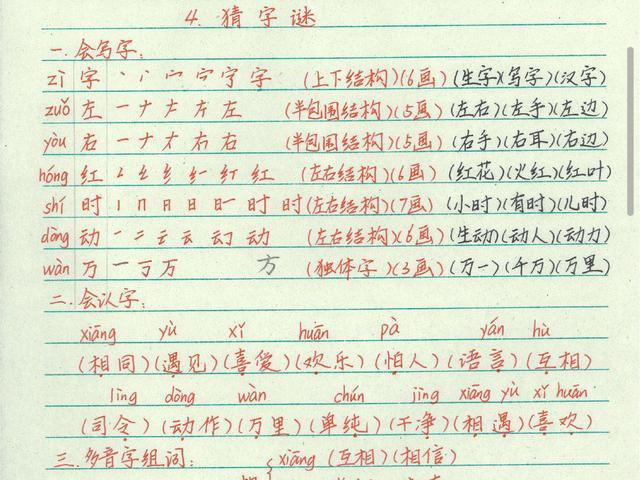 4. 猜字谜
一. 会写字:
zì 字 丶 丷 宀 宁 字 (上下结构)(6画)(生字)(写字)(汉字)
zuǒ 左 一 ナ 𠂇 左 左 (半包围结构)(5画)(左右)(左手)(左边)
yòu 右 一 ナ 才 右 右 (半包围结构)(5画)(右手)(右耳)(右边)
hóng 红 纟 红 红 (左右结构)(6画)(红花)(火红)(红叶)
shí 时 丨 冂 日 日 日一 时 时 (左右结构)(7画)(小时)(有时)(儿时)
dòng 动 一 二 云 云 动 动 (左右结构)(6画)(生动)(动人)(动力)
wàn 万 一 丆 万 方 (独体字)(3画)(万一)(千万)(万里)
二. 会认字:
xiāng yù xǐ huān pà yán hù
(相同)(遇见)(喜爱)(欢乐)(怕人)(语言)(互相)
lìng dòng wàn chún jìng xiāng yù xǐ huān
(司令)(动作)(万里)(单纯)(干净)(相遇)(喜欢)
三. 多音字组词: xiāng (互相)(相信)